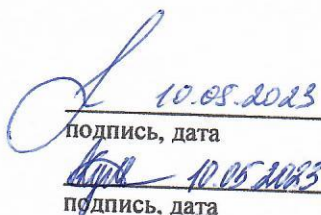 10.05.2023
подпись, дата
10.05.2023
подпись, дата